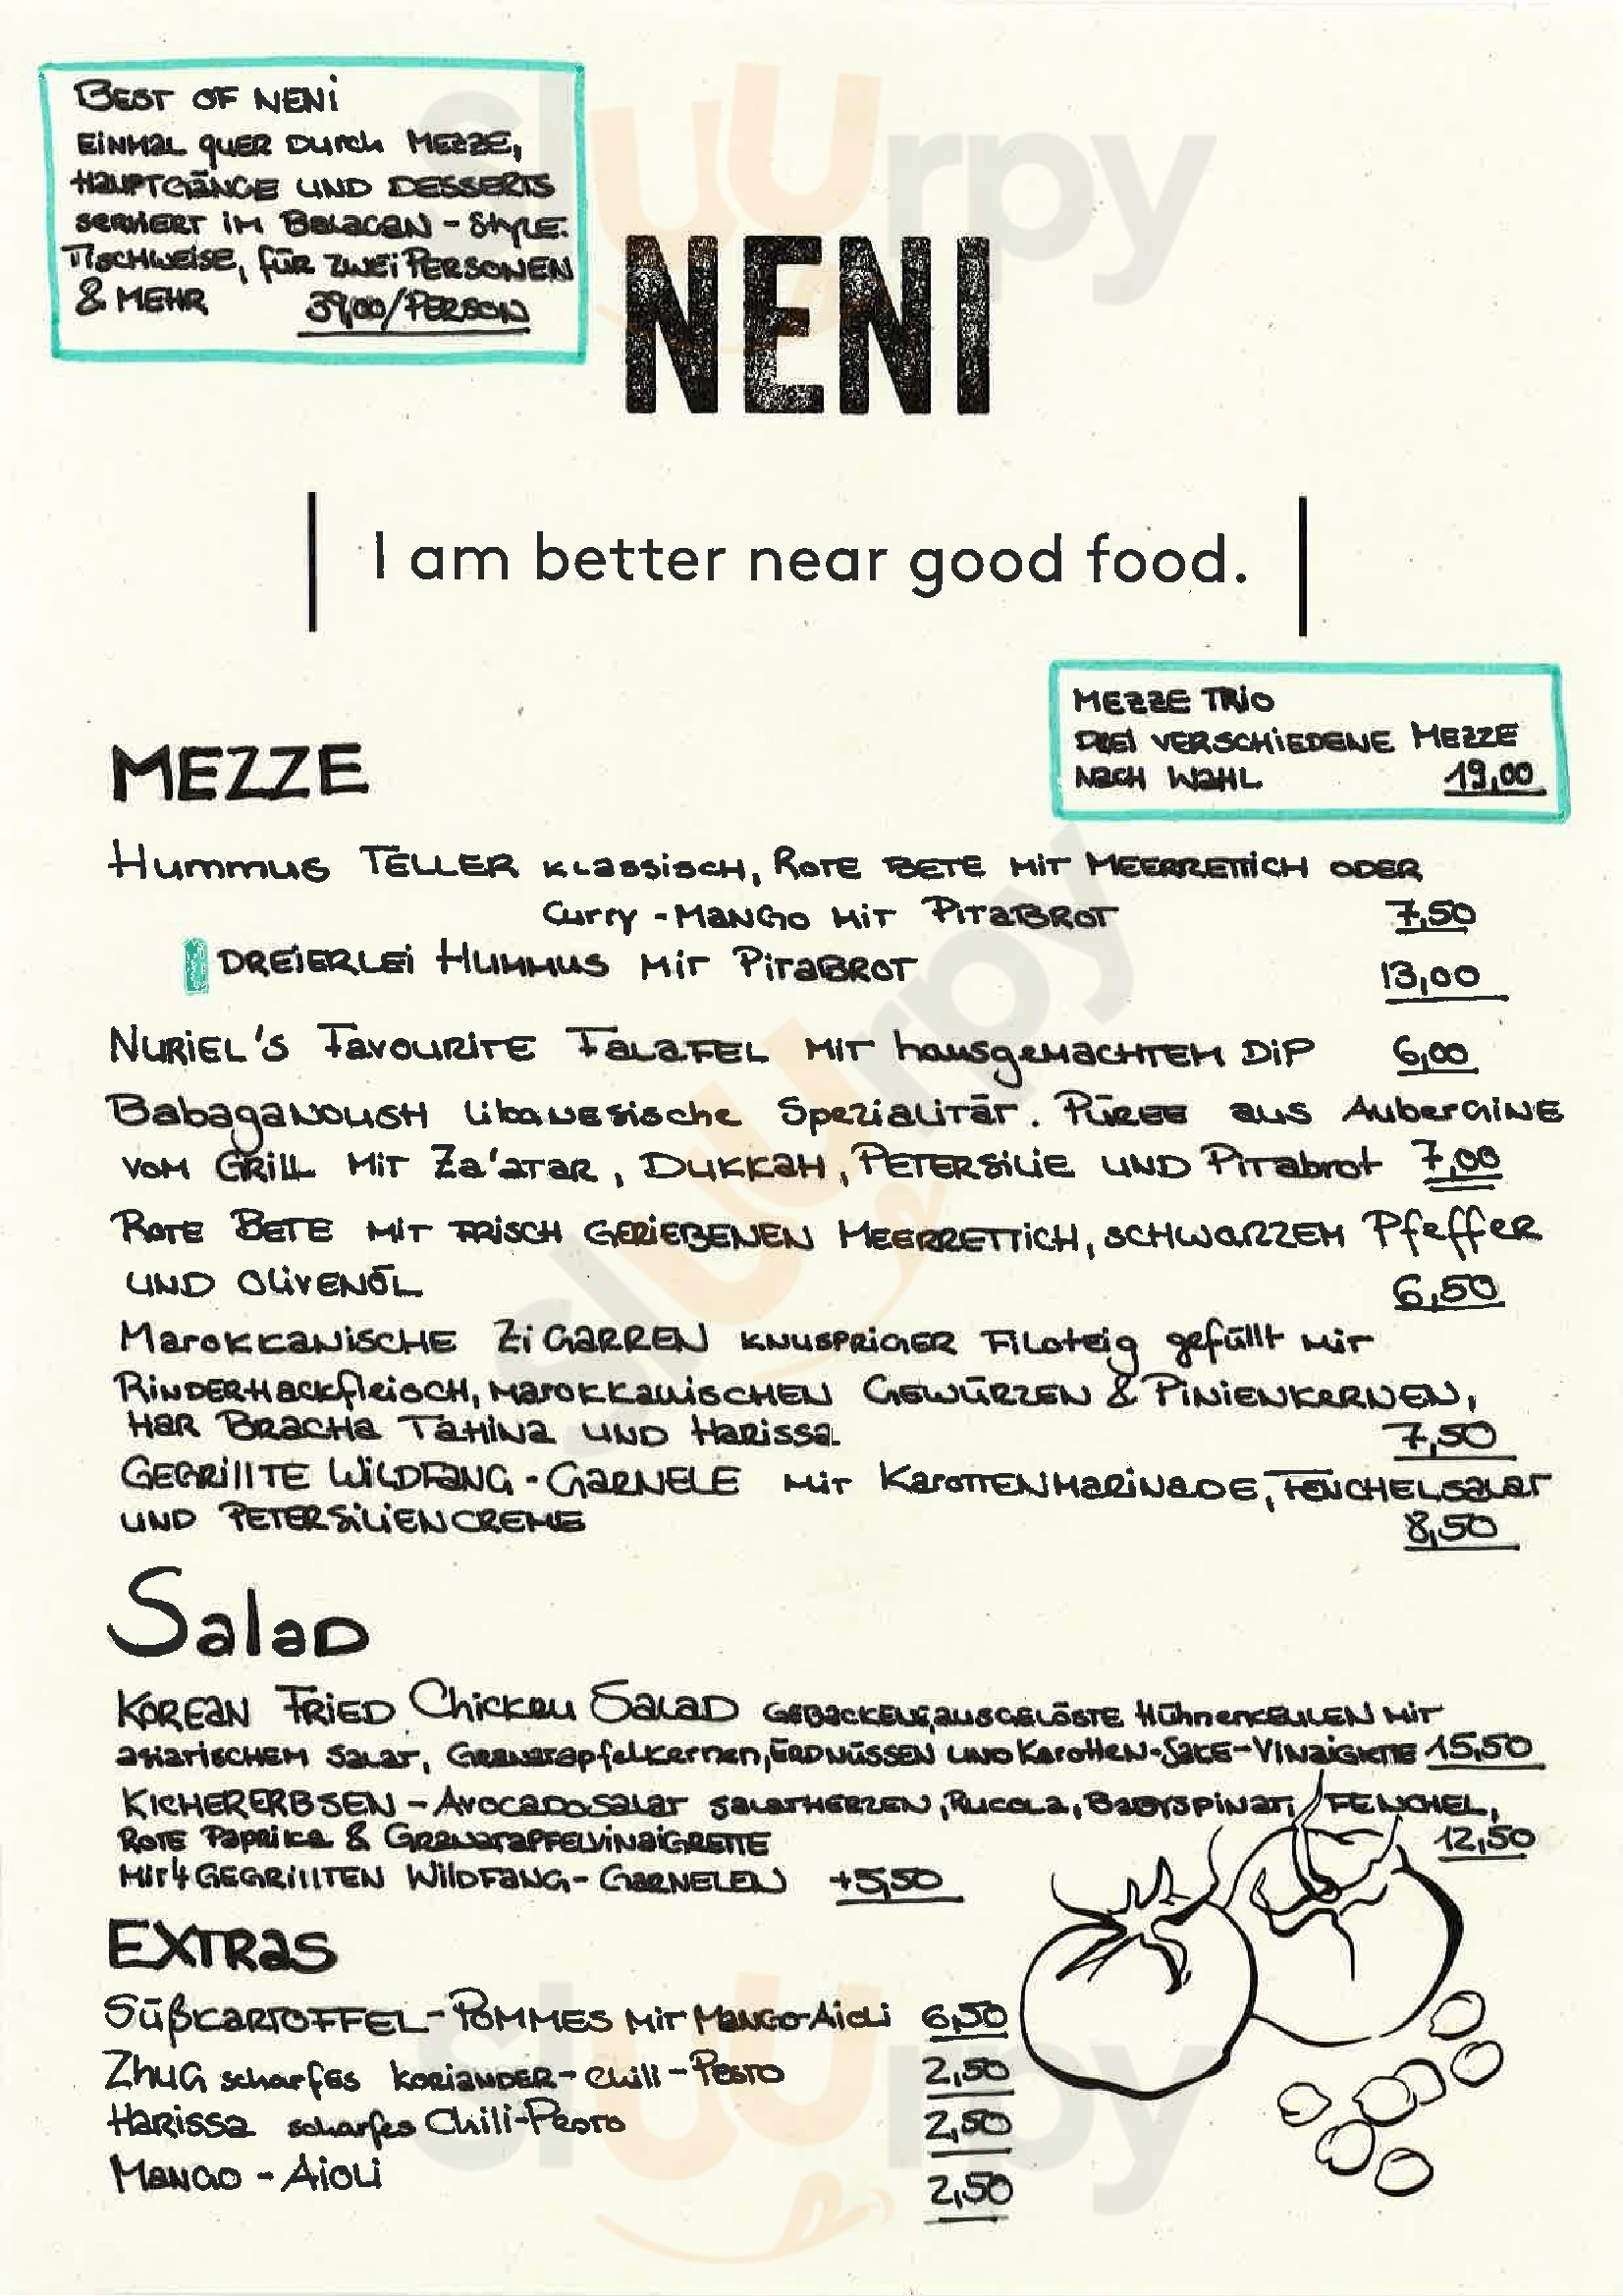 BEST OF NENI
EINMAL QUER DURCH MEZZE,
HAUPTGÄNGE UND DESSERTS
SERVIERT IM BALAGAN - STYLE.
TISCHWEISE, FÜR ZWEI PERSONEN
& MEHR 39,00/PERSON
NENI
I am better near good food.
MEZZE TRIO
DREI VERSCHIEDENE MEZZE
NACH WAHL 19,00
MEZZE
Hummus TELLER KLASSISCH, ROTE BETE MIT MEERRETTICH ODER
Curry - MANGO MIT PITABROT 7,50
DREIERLEI HUMMUS MIT PITABROT 13,00
NURIEL'S FAVOURITE FALAFEL MIT hausgeMACHTEM DIP 6,00
BabagaNOUSH libanesische SpezialITÄT. PÜREE aus AuberGINE
VOM GRILL MIT Za'aTAR, DUKKAH, PETERSILIE UND PITabrot 7,00
ROTE BETE MIT FRISCH GERIEBENEN MEERRETTICH, SCHWARZEM PfeffER
UND OLIVENÖL 6,50
MAROKKANISCHE ZIGARREN KNUSPRIGER FILOTeig gefüllt MIT
RINDERHACKfleISCH, MAROKKANISCHEN GEWÜRZEN & PINIENKERNEN,
HAR BRACHA TAHINA UND HARISSA 7,50
GEGRILLTE WILDFANG - GARNELE MIT KAROTTENMARINADE, FENCHELSALAT
UND PETERSILIENCREME 8,50
SalaD
KOREAN FRIED Chicken SALAD GEBACKENE, AUSGELÖSTE HühnerKEULEN MIT
asiatISCHEM SALAT, GRANATapfelkernen, ERDNÜSSEN UND Karotten-SAKE-VINAIGRETTE 15,50
KICHERERBSEN - AVOCADOSALAT SALATHERZEN, RUCOLA, BABYSPINAT, FENCHEL,
ROTE Paprika & GRANATAPFELVINAIGRETTE 12,50
MIT 4 GEGRILLTEN WILDFANG - GARNELEN +5,50
EXTRAS
SÜßKARTOFFEL - POMMES MIT MANGO-AIOLI 6,50
ZHUG scharfes KORIANDER - Chili - PESTO 2,50
HARISSA scharfes Chili-PESTO 2,50
MANGO - AIOLI 2,50
sluurpy
sluurpy
sluurpy